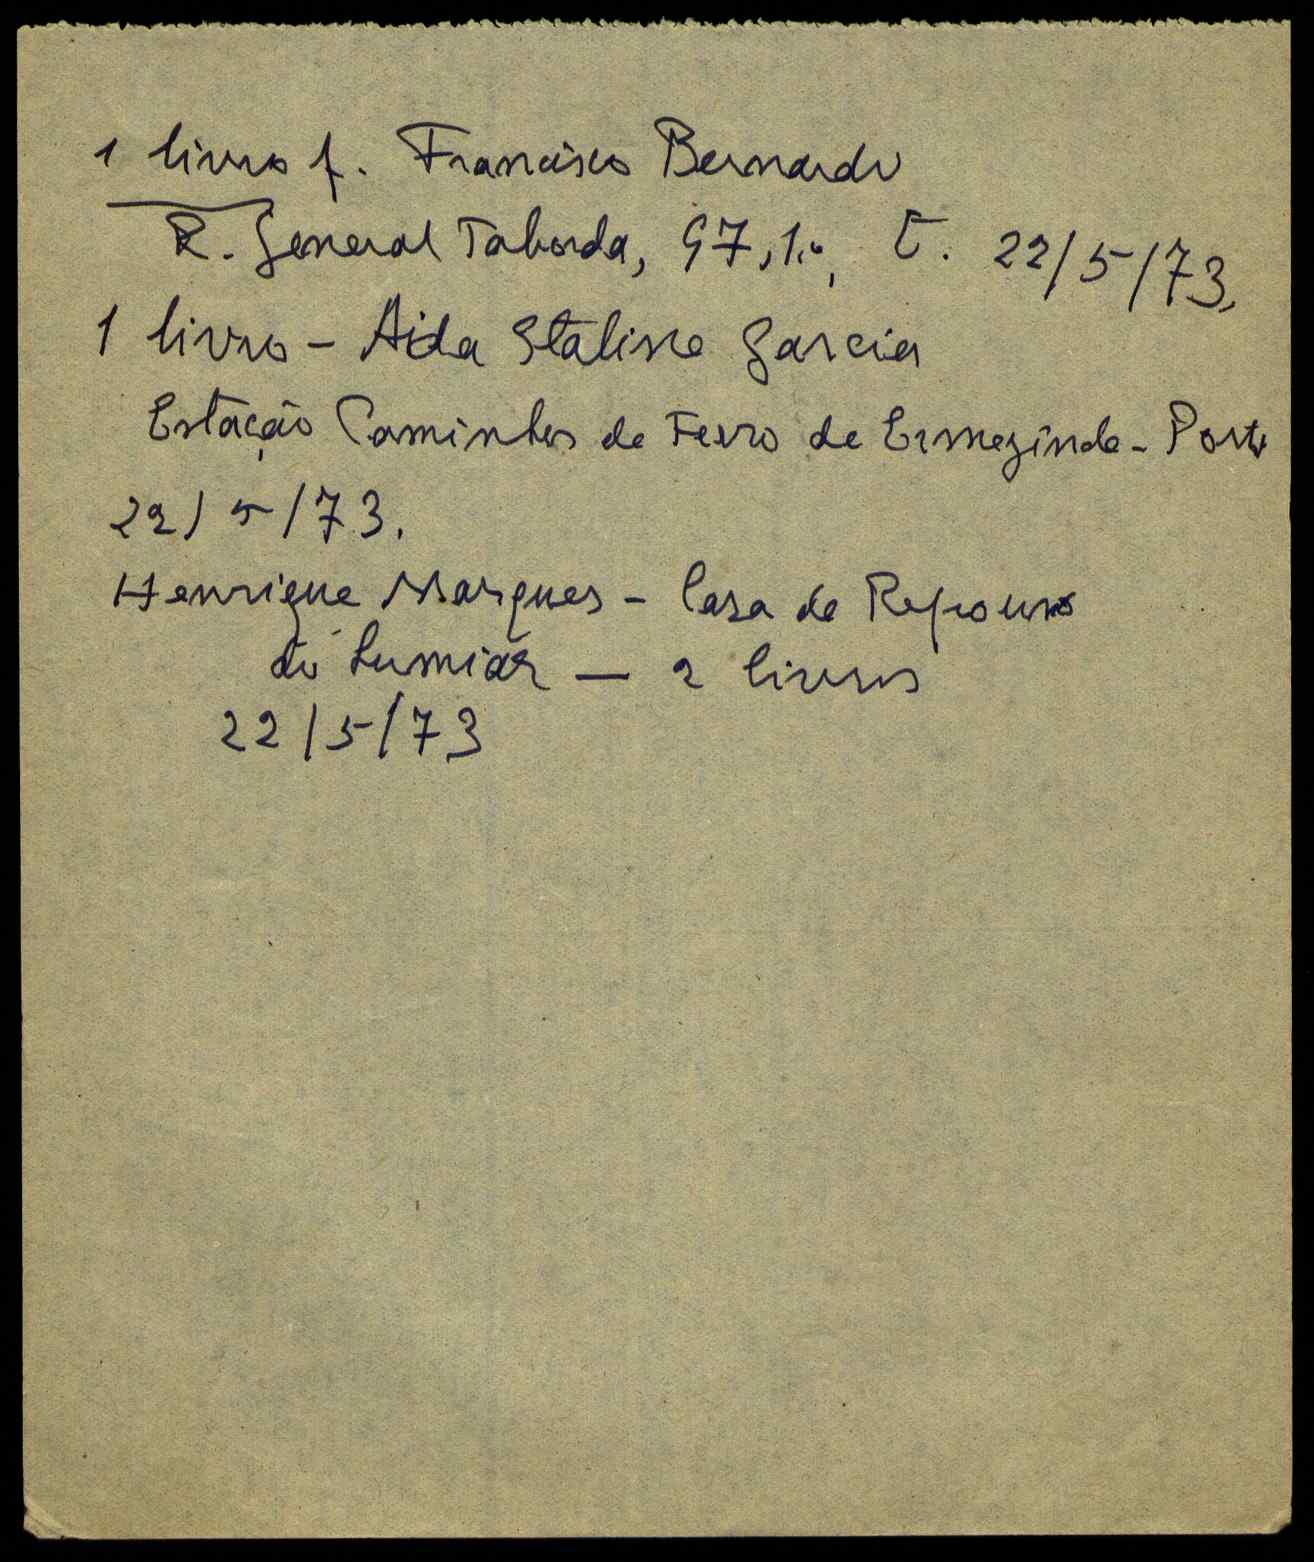 1 livro p. Francisco Bernardo
R. General Taborda, 97, 1.º, E. 22/5/73,
1 livro - Aida Staline Garcia
Estação Caminhos de Ferro de Ermezinde - Porto
22/5/73.
Henrique Marques - Casa de Repouso
do Lumiar — 2 livros
22/5/73